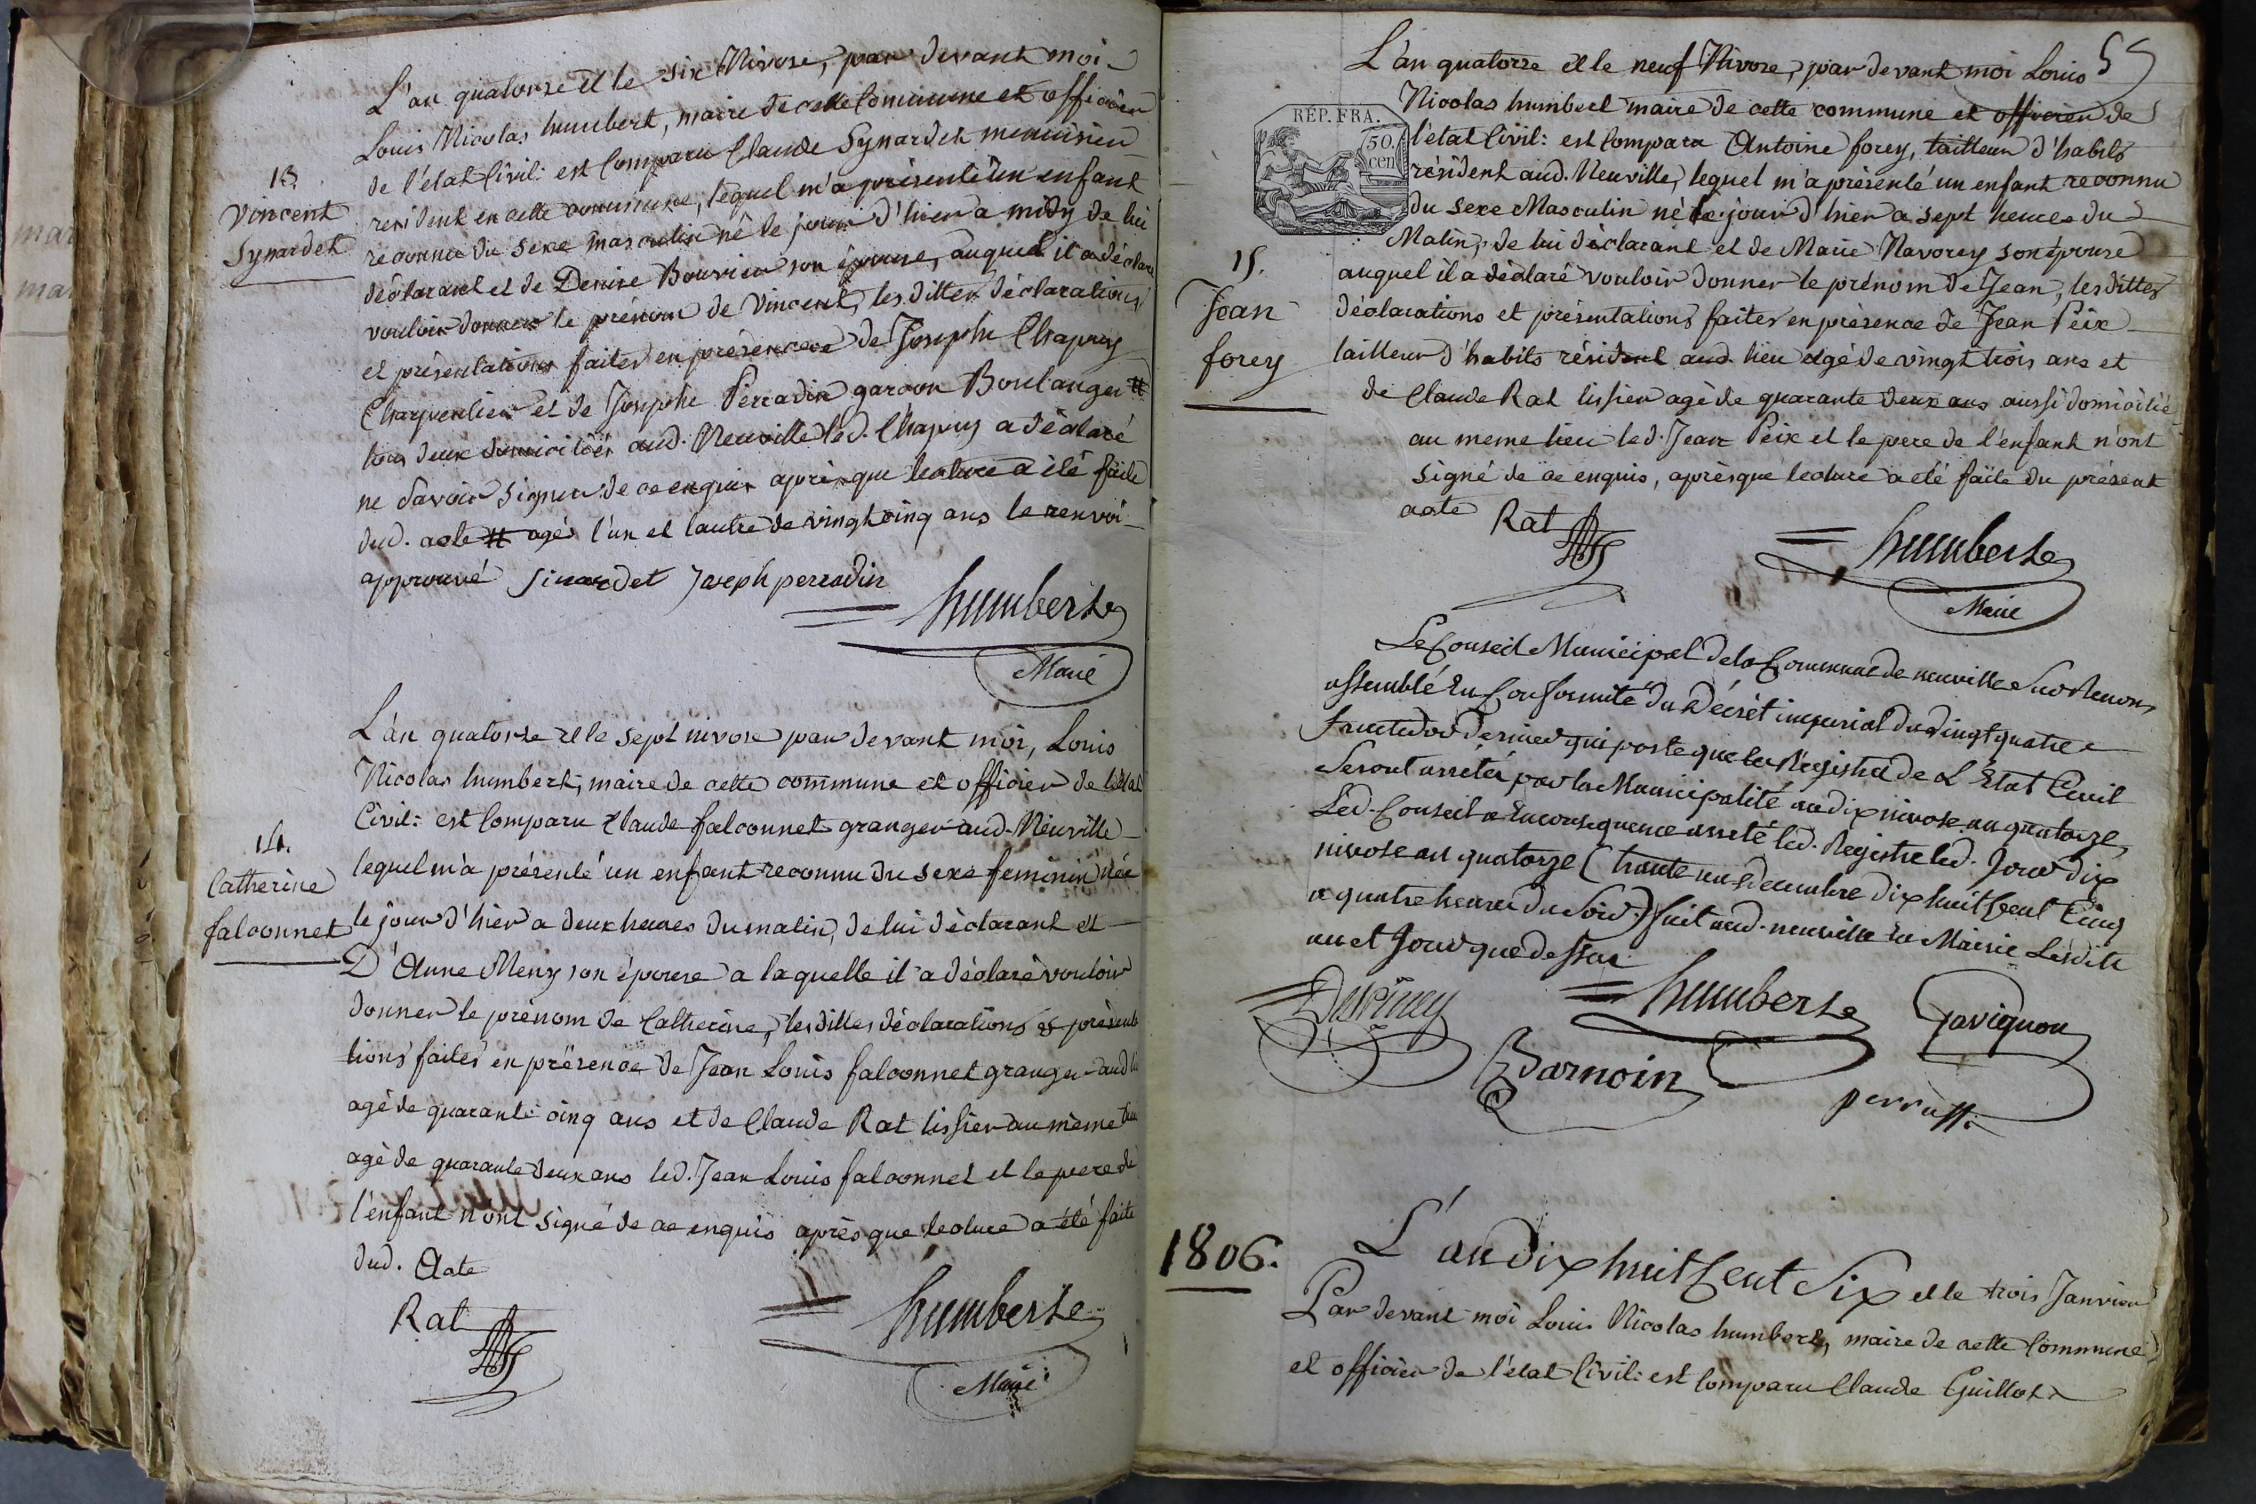 13.
Vincent
Synardet
L'an quatorze et le six Nivose, par devant moi
Louis Nicolas humbert, maire de cette Commune et officier
de l'état Civil: est Comparu Claude Synardet menuisier
resident en cette commune, lequel m'a présenté un enfant
reconnu du sexe masculin né le jour d'hier a midy de lui
déclarant et de Denise Bouvier son épouse, auquel il a déclaré
vouloir donner le prénom de Vincent, les dittes déclarations
et présentations faites en présence de Josephe Chapuy
Charpentier et de Josephe Perradin garcon Boulanger #
tous deux domiciliés aud. Neuville led. Chapuy a déclaré
ne savoir signer de ce enquis après que lecture a été faite
dud. acte # agés l'un et l'autre de vingt cinq ans le renvoi
approuvé Sinardet Joseph perradin
humbert
Maire
14.
Catherine
falconnet
L'an quatorze et le sept nivose par devant moi, Louis
Nicolas humbert, maire de cette commune et officier de l'état
Civil: est Comparu Claude falconnet granger aud. Neuville
lequel m'a présenté un enfant reconnu du sexe feminin née
le jour d'hier a deux heures du matin, de lui déclarant et
D'Anne Meny son épouse a laquelle il a déclaré vouloir
donner le prénom de Catherine, les dittes déclarations et présenta
tions faites en présence de Jean Louis falconnet granger aud. lieu
agé de quarante cinq ans et de Claude Rat tissier au même lieu
agé de quarante deux ans led. Jean Louis falconnet et le pere de
l'enfant n'ont signé de ce enquis après que lecture a été faite
dud. Acte
Rat
humbert
Maire
55
RÉP. FRA.
50.
cen
15.
Jean
forey
L'an quatorze et le neuf Nivose, par devant moi Louis
Nicolas humbert maire de cette commune et officier de
l'état Civil: est Comparu Antoine forey, tailleur d'habits
résident aud. Neuville, lequel m'a présenté un enfant reconnu
du sexe Masculin né le jour d'hier a sept heures du
Matin, de lui déclarant et de Marie Navorey son épouse
auquel il a déclaré vouloir donner le prénom de Jean, les dittes
déclarations et présentations faites en présence de Jean Peix
tailleur d'habits résident aud. lieu agé de vingt trois ans et
de Claude Rat tissier agé de quarante deux ans aussi domicilié
au meme lieu led. Jean Peix et le pere de l'enfant n'ont
signé de ce enquis, après que lecture a été faite du présent
acte
Rat
humbert
Maire
Le Conseil Municipal de la Commune de neuville sur Renon,
assemblé En Conformité du Décret imperial du vingt quatre
fructidor dernier qui porte que les Registres de L'Etat Civil
Seront arretés par la Municipalité au dix nivose an quatorze,
Led. Conseil a En consequence arreté led. Registre led. Jour dix
nivose an quatorze (trante un decembre dix huit Cent Cinq
a quatre heures du Soir.) fait aud. neuville En Mairie Lesdits
an et Jour que dessus
humbert
gavignon
Barnoin
1806.
L'an dix huit Cent Six et le trois Janvier
Par devant moi Louis Nicolas humbert, maire de cette Commune
et officier de l'état Civil: est Comparu Claude Guillot